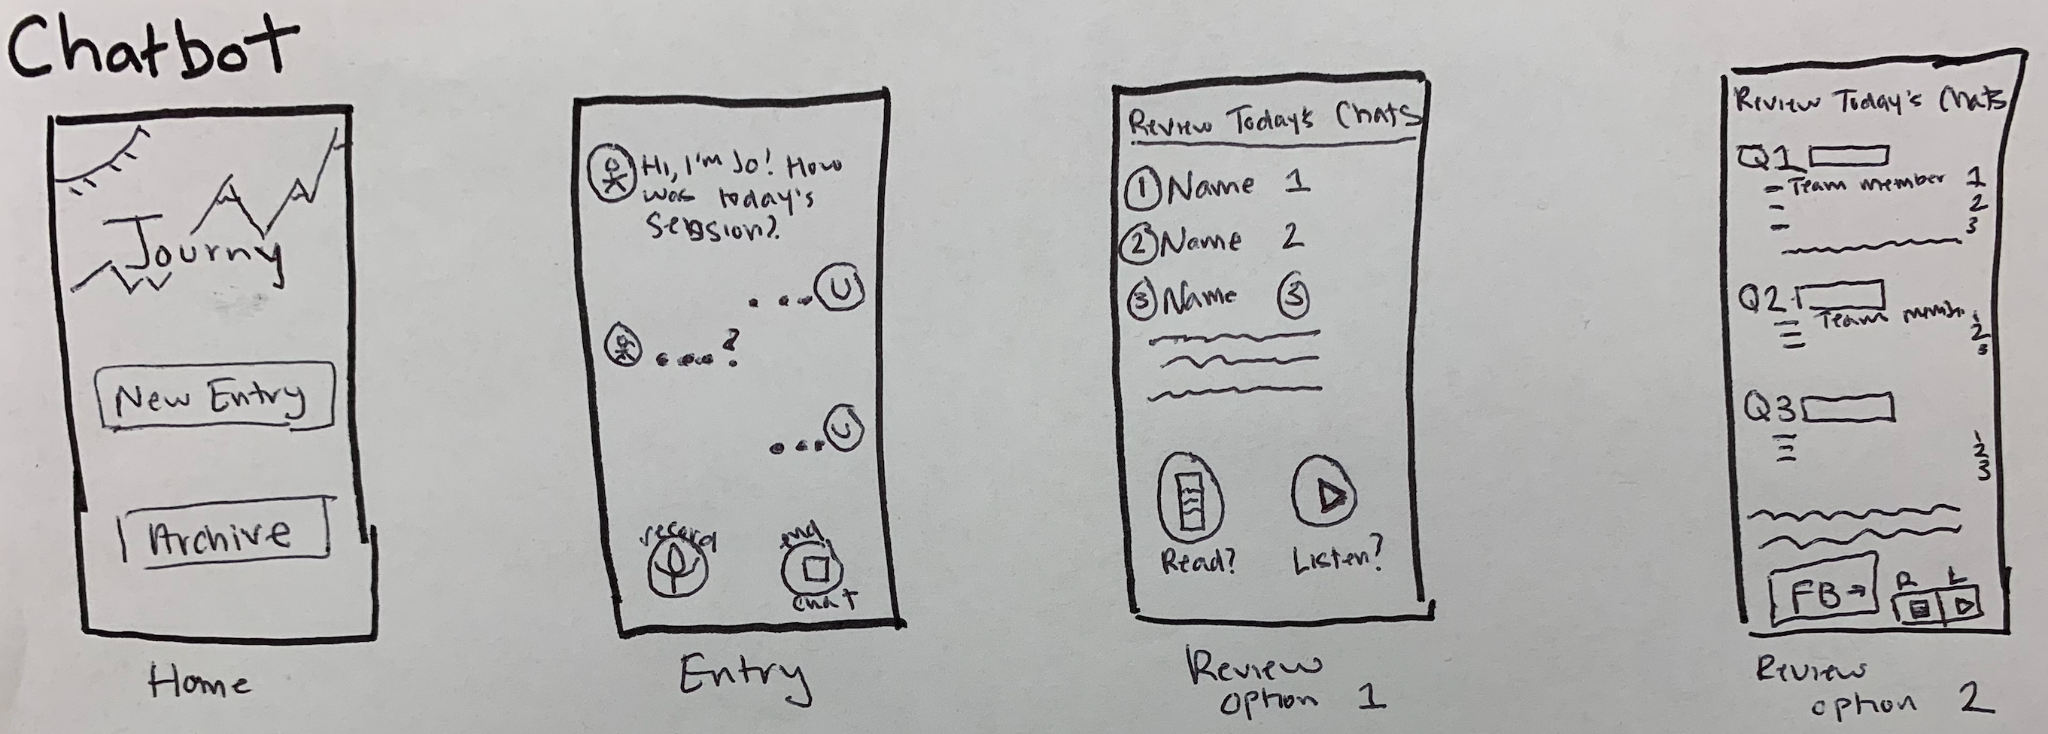 Chatbot
Journy
New Entry
Archive
Home
Hi, I'm Jo! How
was today's
session?
...U
....?
...U
record
end
chat
Entry
Review Today's Chats
1 Name 1
2 Name 2
3 Name 3
Read?
Listen?
Review
option 1
Review Today's Chats
Q1
Team member 1
2
3
Q2
Team member 1
2
3
Q3
1
2
3
FB→
R L
Review
option 2